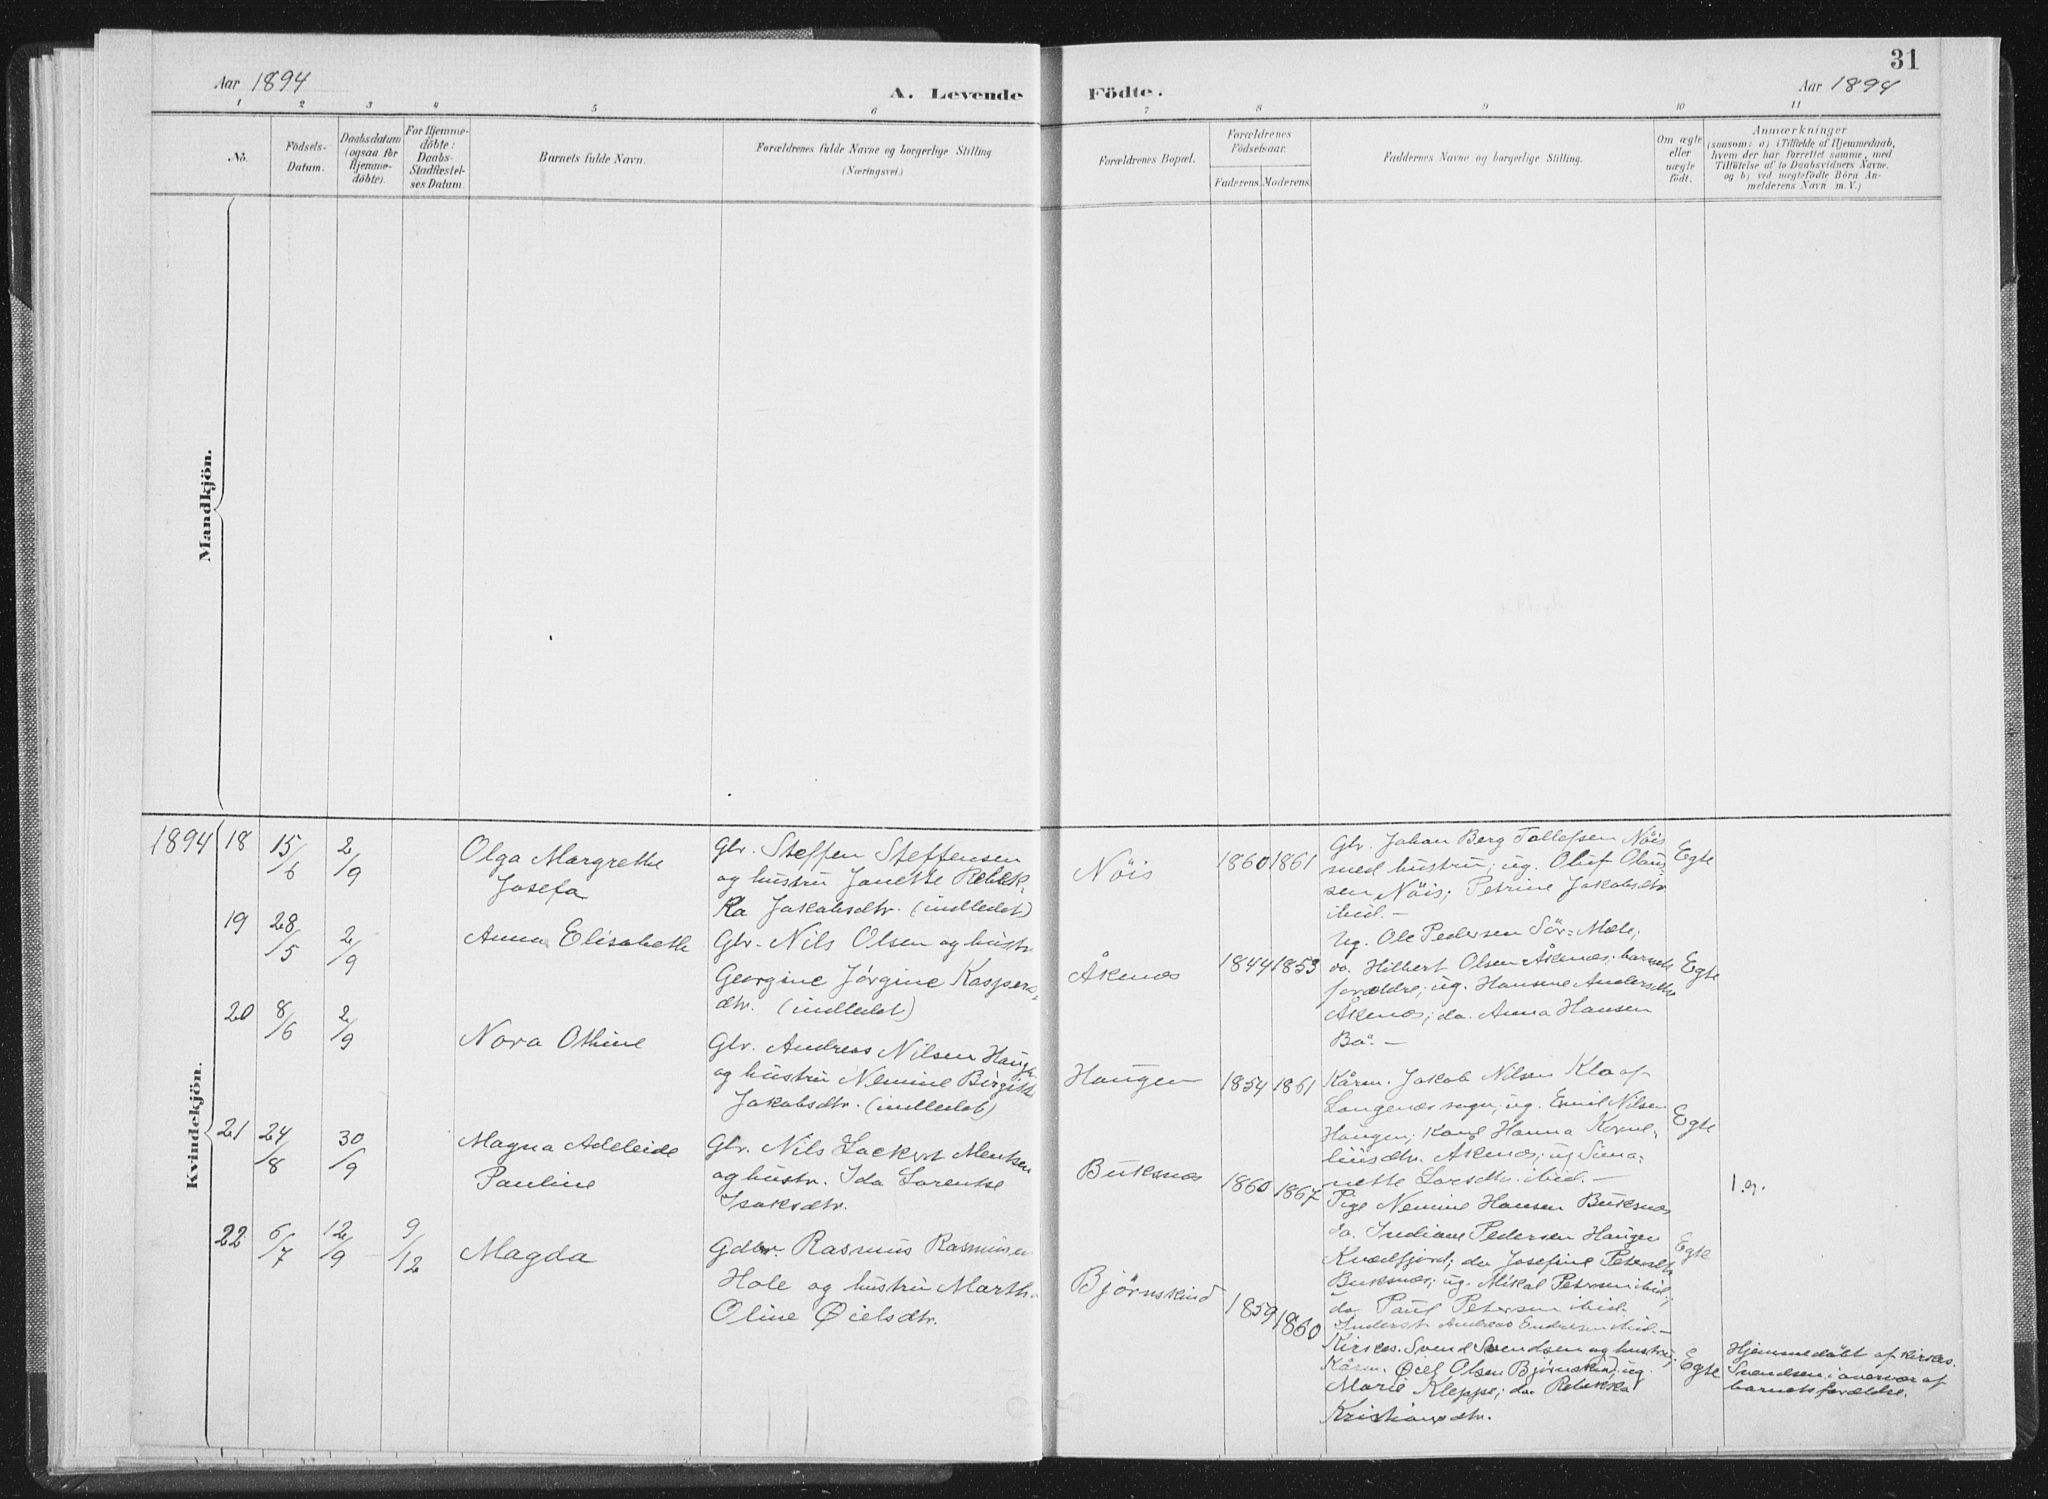 31
Aar 1894
A. Levende Födte.
Aar 1894
1 2 3 4 5 6 7 8 9 10 11
No.
Födsels-
Datum.
Daabsdatum
(ogsaa for
Hjemme-
döbte).
For Hjemme-
döbte:
Daabs-
Stadfæstel-
ses Datum.
Barnets fulde Navn.
Forældrenes fulde Navne og borgerlige Stilling
(Næringsvei.)
Forældrenes Bopæl.
Forældrenes
Födselsaar.
Faderens. Moderens.
Faddernes Navne og borgerlige Stilling.
Om ægte
eller
uægte
født.
Anmærkninger
(saasom: a) i Tilfælde af Hjemmedaab,
hvem der har forrettet samme, med
Tilföielse af to Daabsvidners Navne,
og b) ved uægtefödte Börn An-
melderens Navn m. V.)
Mandkjön.
Kvindekjön.
1894
18
15/6
2/9
Olga Margrethe
Josefa
Gbr. Steffen Steffensen
og hustru Janette Rebek-
ka Jakobsdtr. (indledet)
Nöis
1860 1861
Gbr. Johan Berg Tollefsen Nöis
med hustru; ug. Oluf Olaus-
sen Nöis; Petrine Jakobsdtr.
ibid. —
Egte
19
28/5
2/9
Anna Elisabeth
Gbr. Nils Olsen og hustr.
Georgine Jörgine Kaspers-
dtr. (indledet)
Åkenes
1844 1853
Ug. Ole Pedersen Sör-Mele;
do. Hilbert Olsen Åkenes; barnets
forældre; ug. Hansine Andersdtr.
Åkenes; do. Anna Hansen
Bö. —
Egte
20
8/6
2/9
Nora Othine
Gbr. Andreas Nilsen Haugen
og hustru Nemine Birgitte
Jakobsdtr. (indledet)
Haugen
1854 1861
Kårm. Jakob Nilsen Klo af
Langenes sogn; ug. Emil Nilsen
Haugen; Kone Hanna Korne-
liusdtr. Åkenes; ug Sima-
nette Larsdtr. ibid. —
Egte
21
24/8
30/9
Magna Adeleide
Pauline
Gbr. Nils Mentsen
og hustr. Ida Lorentse
Isaksdtr.
Buksnes
1860 1867
Pige Nemine Hansen Buksnes
do. Indiane Pedersen Haugen
Kvædfjord; do Josefine Petersdtr.
Buksnes; ug. Mikal Petersen ibid.;
do Paul Petersen ibid.
Inderst Andreas Endresen ibid. —
Egte
1. g.
22
6/7
12/9
9/12
Magda
Gdbr. Rasmus Rasmussen
Hole og hustru Martha
Oline Øielsdtr.
Björnskind
1859 1860
Kirkes. Svend Svendsen og hustru;
Kårm. Øiel Olsen Björnskind; ug.
Marie Kleppe; do Rebekka
Kristiansdtr.
Egte
Hjemmedöbt af kirkes.
Svendsen i overvær af
barnets forældre.